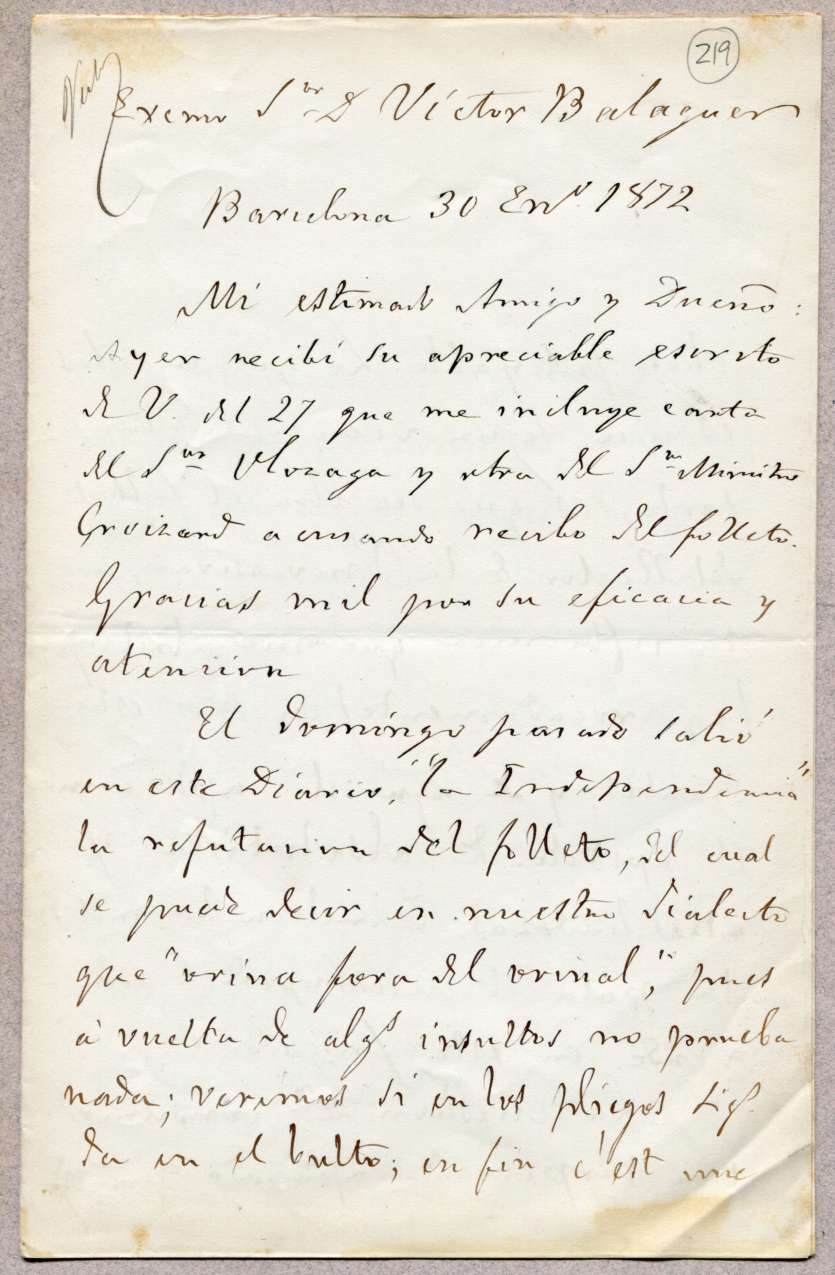 219
Exemo Sor D Víctor Balaguer
Barcelona 30 Eno. 1872
Mi estimado Amigo y Dueño:
Ayer recibí su apreciable escrito
de V. del 27 que me incluye carta
del Sor Olozaga y otra del Sor Ministro
Groizard acusando recibo del folleto.
Gracias mil por su eficacia y
atencion
El domingo pasado salió
en este Diario, "la Independencia"
la refutacion del folleto, del cual
se puede decir en nuestro dialecto
que "orina fora del orinal", pues
á vuelta de algs insultos no prueba
nada; veremos si en los pliegos sigs.
da en el bulto; en fin c'est une